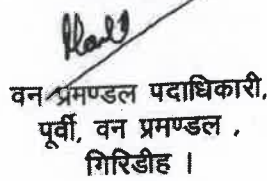 वन प्रमण्डल पदाधिकारी,
पूर्वी, वन प्रमण्डल ,
गिरिडीह ।